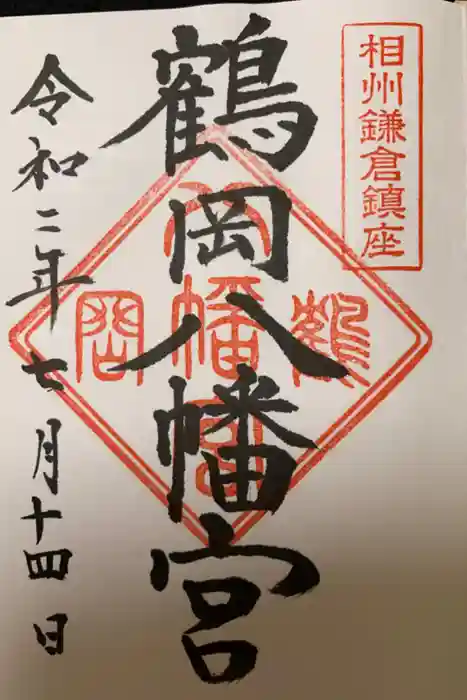 相州鎌倉鎮座
鶴岡八幡宮
鶴
八幡宮
岡
令和二年七月十四日